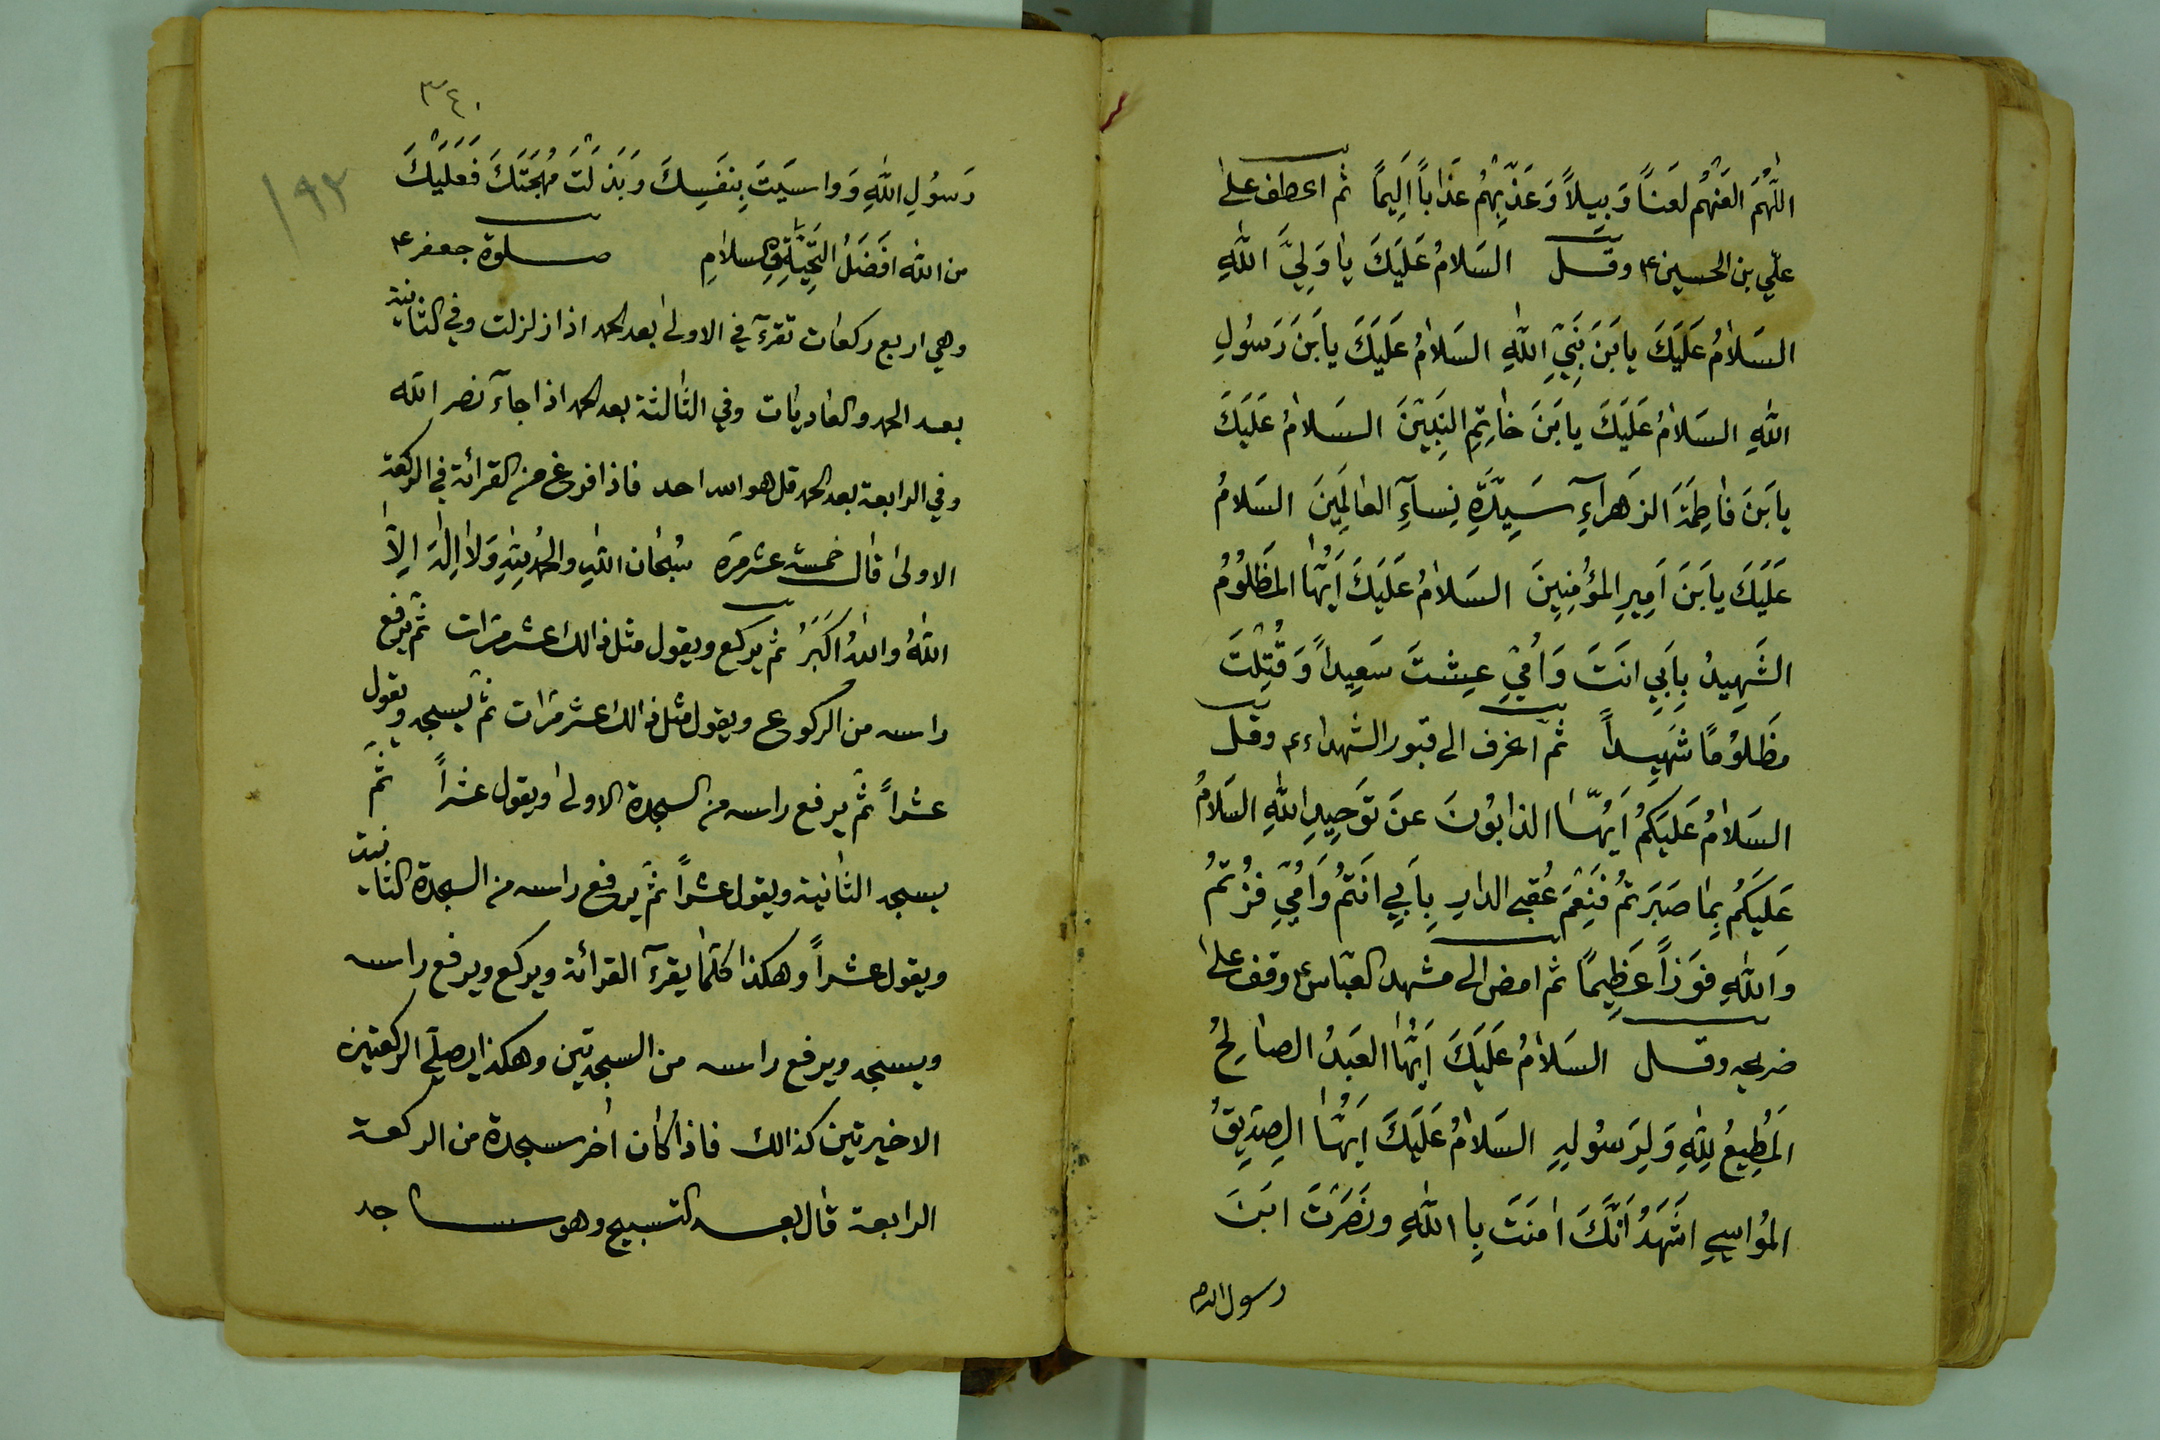 اللّٰهُمَّ العَنْهُم لَعنًا وَبِيلاً وَعَذِّبْهُم عَذاباً اَلِيمًا ثم اعطف على
علي بن الحسين ع وقل السَلامُ عَلَيَكَ يا وَلِيَّ اللّٰهِ
السَلامُ عَلَيَكَ يا بَنَ نَبِيِّ اللّٰهِ السَلامُ عَلَيَكَ يا بَنَ رَسُولِ
اللّٰهِ السَلامُ عَلَيَكَ يا بَنَ خاتِمِ النَبِيّنَ السَلامُ عَلَيَكَ
يا بَنَ فاطِمَةَ الزَهراءِ سَيِدَّةِ نِساءِ العالَمِينَ السَلامُ
عَلَيَكَ يا بَنَ اَمِيرِ المؤُمِنِينَ السَلامُ عَلَيَكَ اَيُّهَا المَظلُومُ
الشَهِيدُ بِاَبِي انَتَ وَاُمّيِ عِشتَ سَعِيداً وَقُتِلْتَ
مظَلُومًا شَهِيداً ثم انحرف الى قبور الشهداء ع وقل
السَلامُ عَلَيَكُم اَيُّهَا الذابوُنَ عنَ توَحِيدِ اللّٰهِ السَلامُ
عَلَيَكُم بِمٰا صَبَرتمُ فَنِعْمَ عُقبى الدارِ بِاَبِي انَتمُ وَاُمّيِ فزُتمُ
وَاللّٰهِ فوَزاً عَظِيمًا ثم امض الى مشهد العبّاس ع وقف على
ضريحه وقل السَلامُ عَلَيَكَ اَيُّهَا العَبَدُ الصالِحُ
المُطِيعُ للِّٰهِ وَلِرَسُولِهِ السَلامُ عَلَيَكَ اَيُّهَا الصِدّيِقُ
المُواسِي اشَهَدُ اَنَّكَ امَنَتَ بِا اللّٰهِ ونَصَرَتَ ابَنَ
رسول الله
٣٤٠
١٩٢
رَسُولِ اللّٰهِ وَواسَيَتَ بِنفَسِكَ وَبَذَلْتَ مُهجَتَكَ فَعَلَيَكَ
من اللّٰه افَضَلُ التَحِيّةِ والسلامِ صلوة جعفر ع
وهي اربع ركعات تقرء في الاولى بعد الحمد اذا زلزلت وفي الثانية
بعد الحمد والعاديات وفي الثالثة بعد الحمد اذا جاء نصر الله
وفي الرابعة بعد الحمد قل هو الله احد فاذا فرغ من القرائة في الركعة
الاولى قال خمسة عشر مرة سُبحٰان اللّٰهِ والحمُد للِّٰهِ وَلا اِلٰهَ اِلاّ
اللّٰهُ واللّٰهُ اكَبَرُ ثم يركع ويقول مثل ذالك عشر مرّات ثم يرفع
راسه من الركوع ويقول مثل ذالك عشر مرّات ثم يسجد ويقول
عشراً ثم يرفع راسه من السجدة الاولى ويقول عشراً ثم
يسجد الثانية ويقول عشراً ثم يرفع راسه من السجدة الثانية
ويقول عشراً وهكذا كلّما يقرء القرائة ويركع ويرفع راسه
ويسجد ويرفع راسه من السجدتين وهكذا يصلّي الركعتين
الاخيرتين كذالك فاذا كان اخر سجدة من الركعة
الرابعة قال بعد التسبيح وهو ساجد